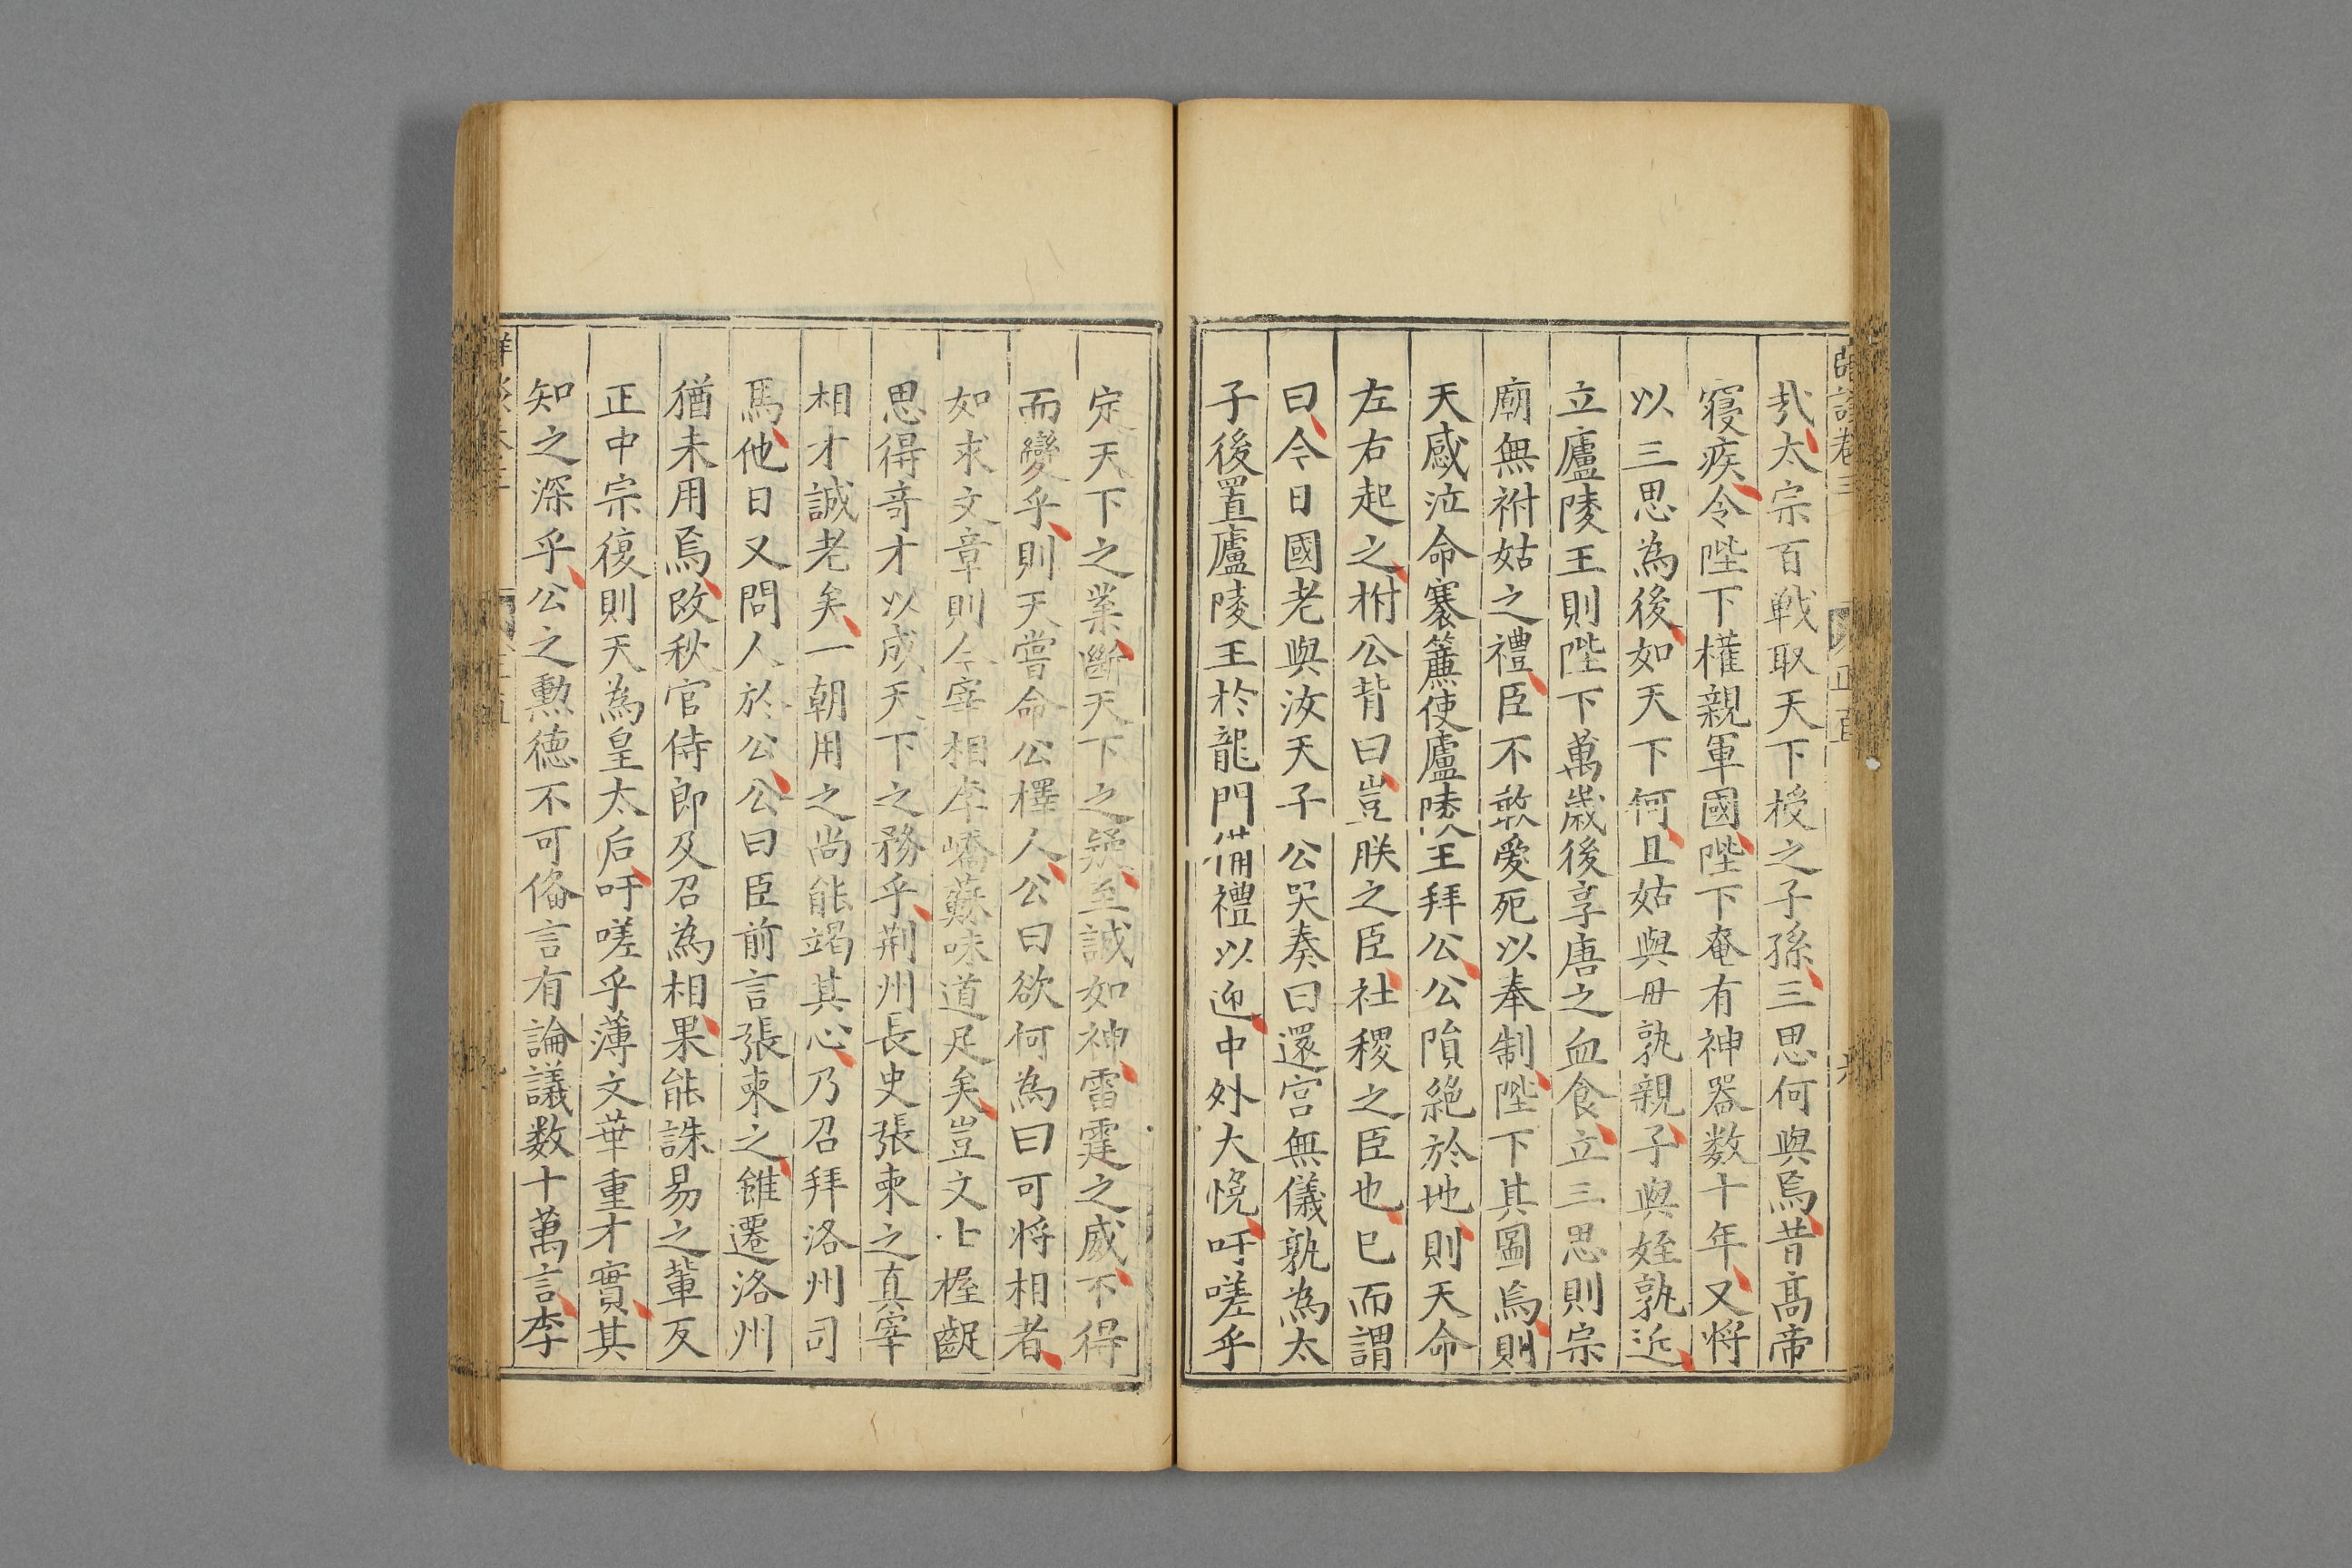 弐太宗百戦取天下授之子孫三思何與焉昔髙帝
寢疾令陛下權親軍國陛下奄有神器数十年又將
以三思為後如天下何且姑與毋孰親子與姪孰近
立廬陵王則陛下萬歲後享唐之血食立三思則宗
廟無祔姑之禮臣不敢愛死以奉制陛下其圖焉則
天感泣命褰簾使廬陵王拜公公隕絶於地則天命
左右起之柎公背曰豈朕之臣社稷之臣也巳而謂
曰今日國老與汝天子公哭奏曰還宮無儀孰為太
子後置廬陵王於龍門備禮以迎中外大悅吁嗟乎
定天下之業斷天下之疑至誠如神雷霆之威不得
而變乎則天嘗命公擇人公曰欲何為曰可将相者
如求文章則今宰相李嶠蘇味道足矣豈文士楃齪
思得竒才以成天下之務乎荆州長史張柬之真宰
相才誠老矣一朝用之尚能竭其心乃召拜洛州司
馬他日又問人於公公曰臣前言張柬之雖遷洛州
猶未用焉改秋官侍郎及召為相果能誅易之輩反
正中宗復則天為皇太后吁嗟乎薄文華重才實其
知之深乎公之勲德不可俻言有論議数十萬言李